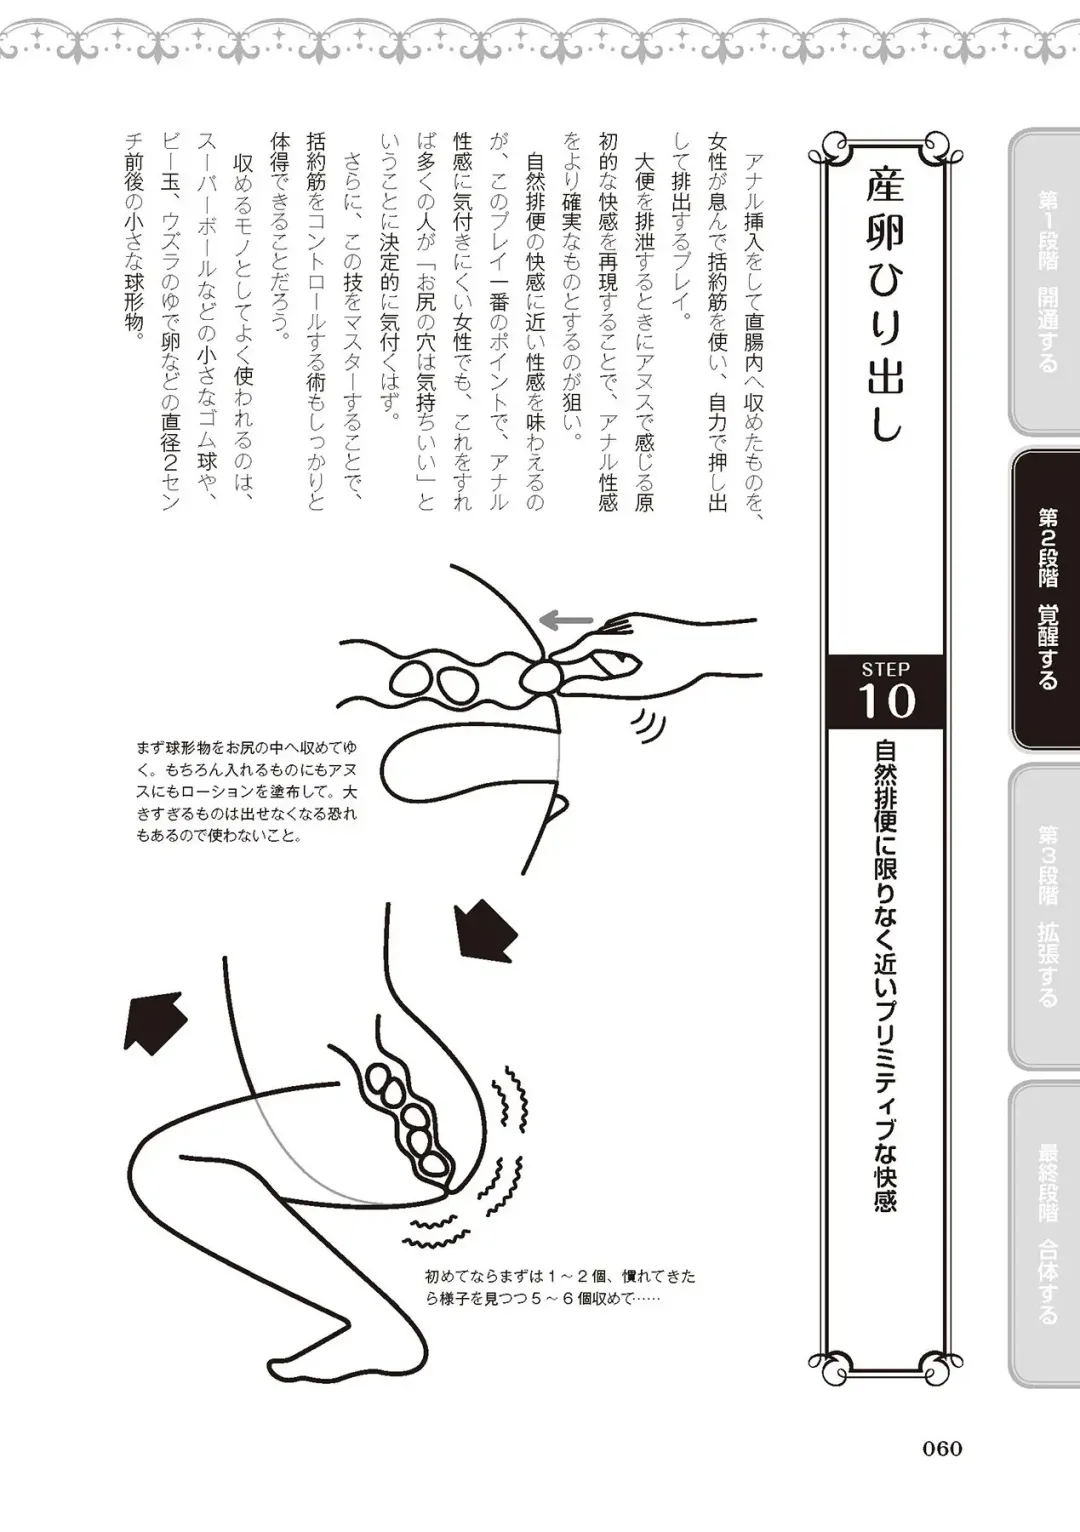 産卵ひり出し
STEP
10
自然排便に限りなく近いプリミティブな快感
アナル挿入をして直腸内へ収めたものを、
女性が息んで括約筋を使い、自力で押し出
して排出するプレイ。
大便を排泄するときにアヌスで感じる原
初的な快感を再現することで、アナル性感
をより確実なものとするのが狙い。
自然排便の快感に近い性感を味わえるの
が、このプレイ一番のポイントで、アナル
性感に気付きにくい女性でも、これをすれ
ば多くの人が「お尻の穴は気持ちいい」と
いうことに決定的に気付くはず。
さらに、この技をマスターすることで、
括約筋をコントロールする術もしっかりと
体得できることだろう。
収めるモノとしてよく使われるのは、
スーパーボールなどの小さなゴム球や、
ビー玉、ウズラのゆで卵などの直径2セン
チ前後の小さな球形物。
まず球形物をお尻の中へ収めてゆ
く。もちろん入れるものにもアヌ
スにもローションを塗布して。大
きすぎるものは出せなくなる恐れ
もあるので使わないこと。
初めてならまずは1～2個、慣れてきた
ら様子を見つつ5～6個収めて……
第1段階 開通する
第2段階 覚醒する
第3段階 拡張する
最終段階 合体する
060